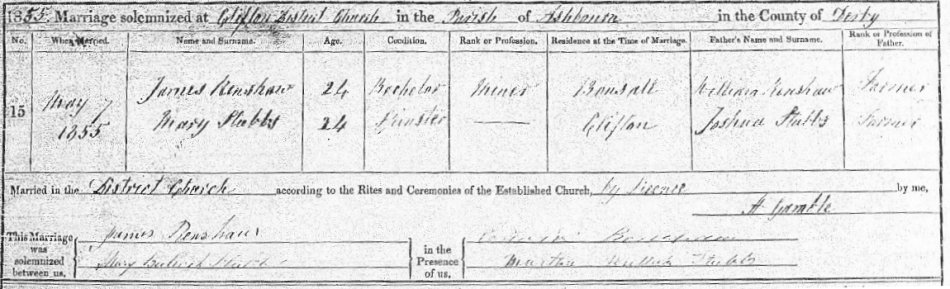 1855. Marriage solemnized at Clifton District Church in the Parish of Ashbourn in the County of Derby
No. When Married. Name and Surname. Age. Condition. Rank or Profession. Residence at the Time of Marriage. Father's Name and Surname. Rank or Profession of Father.
15 May 7 1855 James Renshaw 24 Bachelor Miner Bonsall William Renshaw Farmer
Mary Stubbs 24 Spinster — Clifton Joshua Stubbs Farmer
Married in the District Church according to the Rites and Ceremonies of the Established Church, by Licence by me,
H Gamble
This Marriage was solemnized between us, James Renshaw in the Presence of us. Renshaw
Mary Stubbs Martha Stubbs